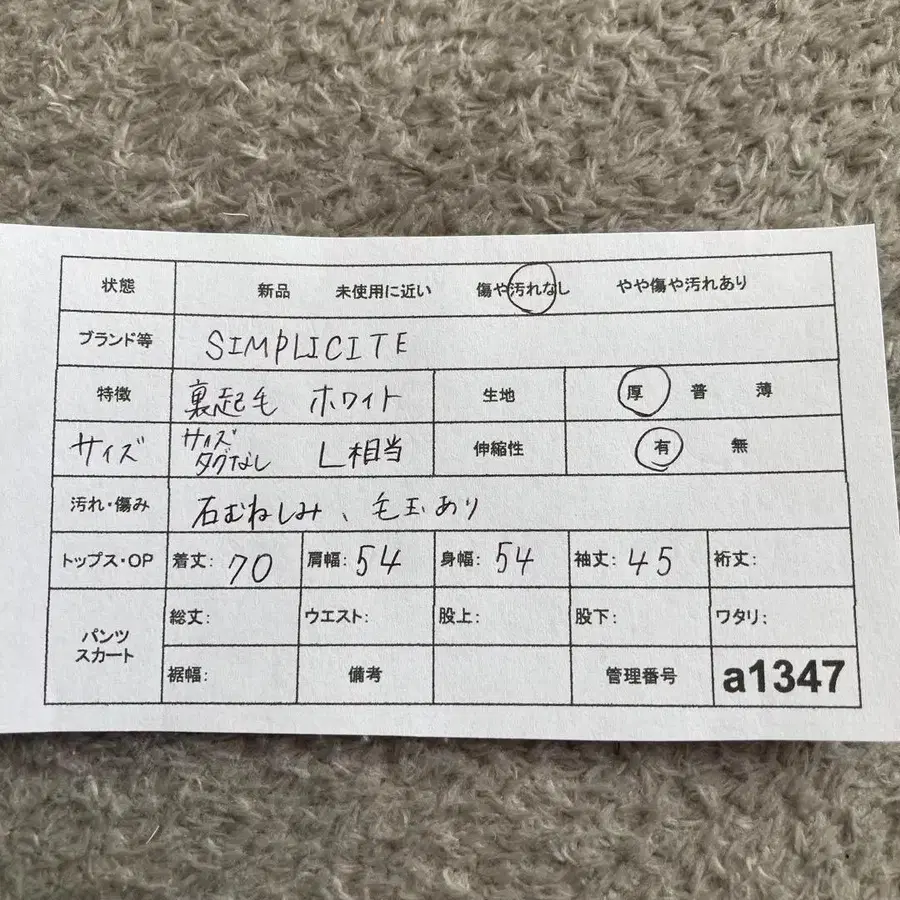 状態 新品 未使用に近い 傷や汚れなし やや傷や汚れあり
ブランド等 SIMPLICITE
特徴 裏起毛 ホワイト 生地 厚 普 薄
サイズ サイズタグなし L相当 伸縮性 有 無
汚れ・傷み 石むねしみ、毛玉あり
トップス・OP 着丈: 70 肩幅: 54 身幅: 54 袖丈: 45 裄丈:
パンツ スカート 総丈: ウエスト: 股上: 股下: ワタリ:
裾幅: 備考 管理番号 a1347